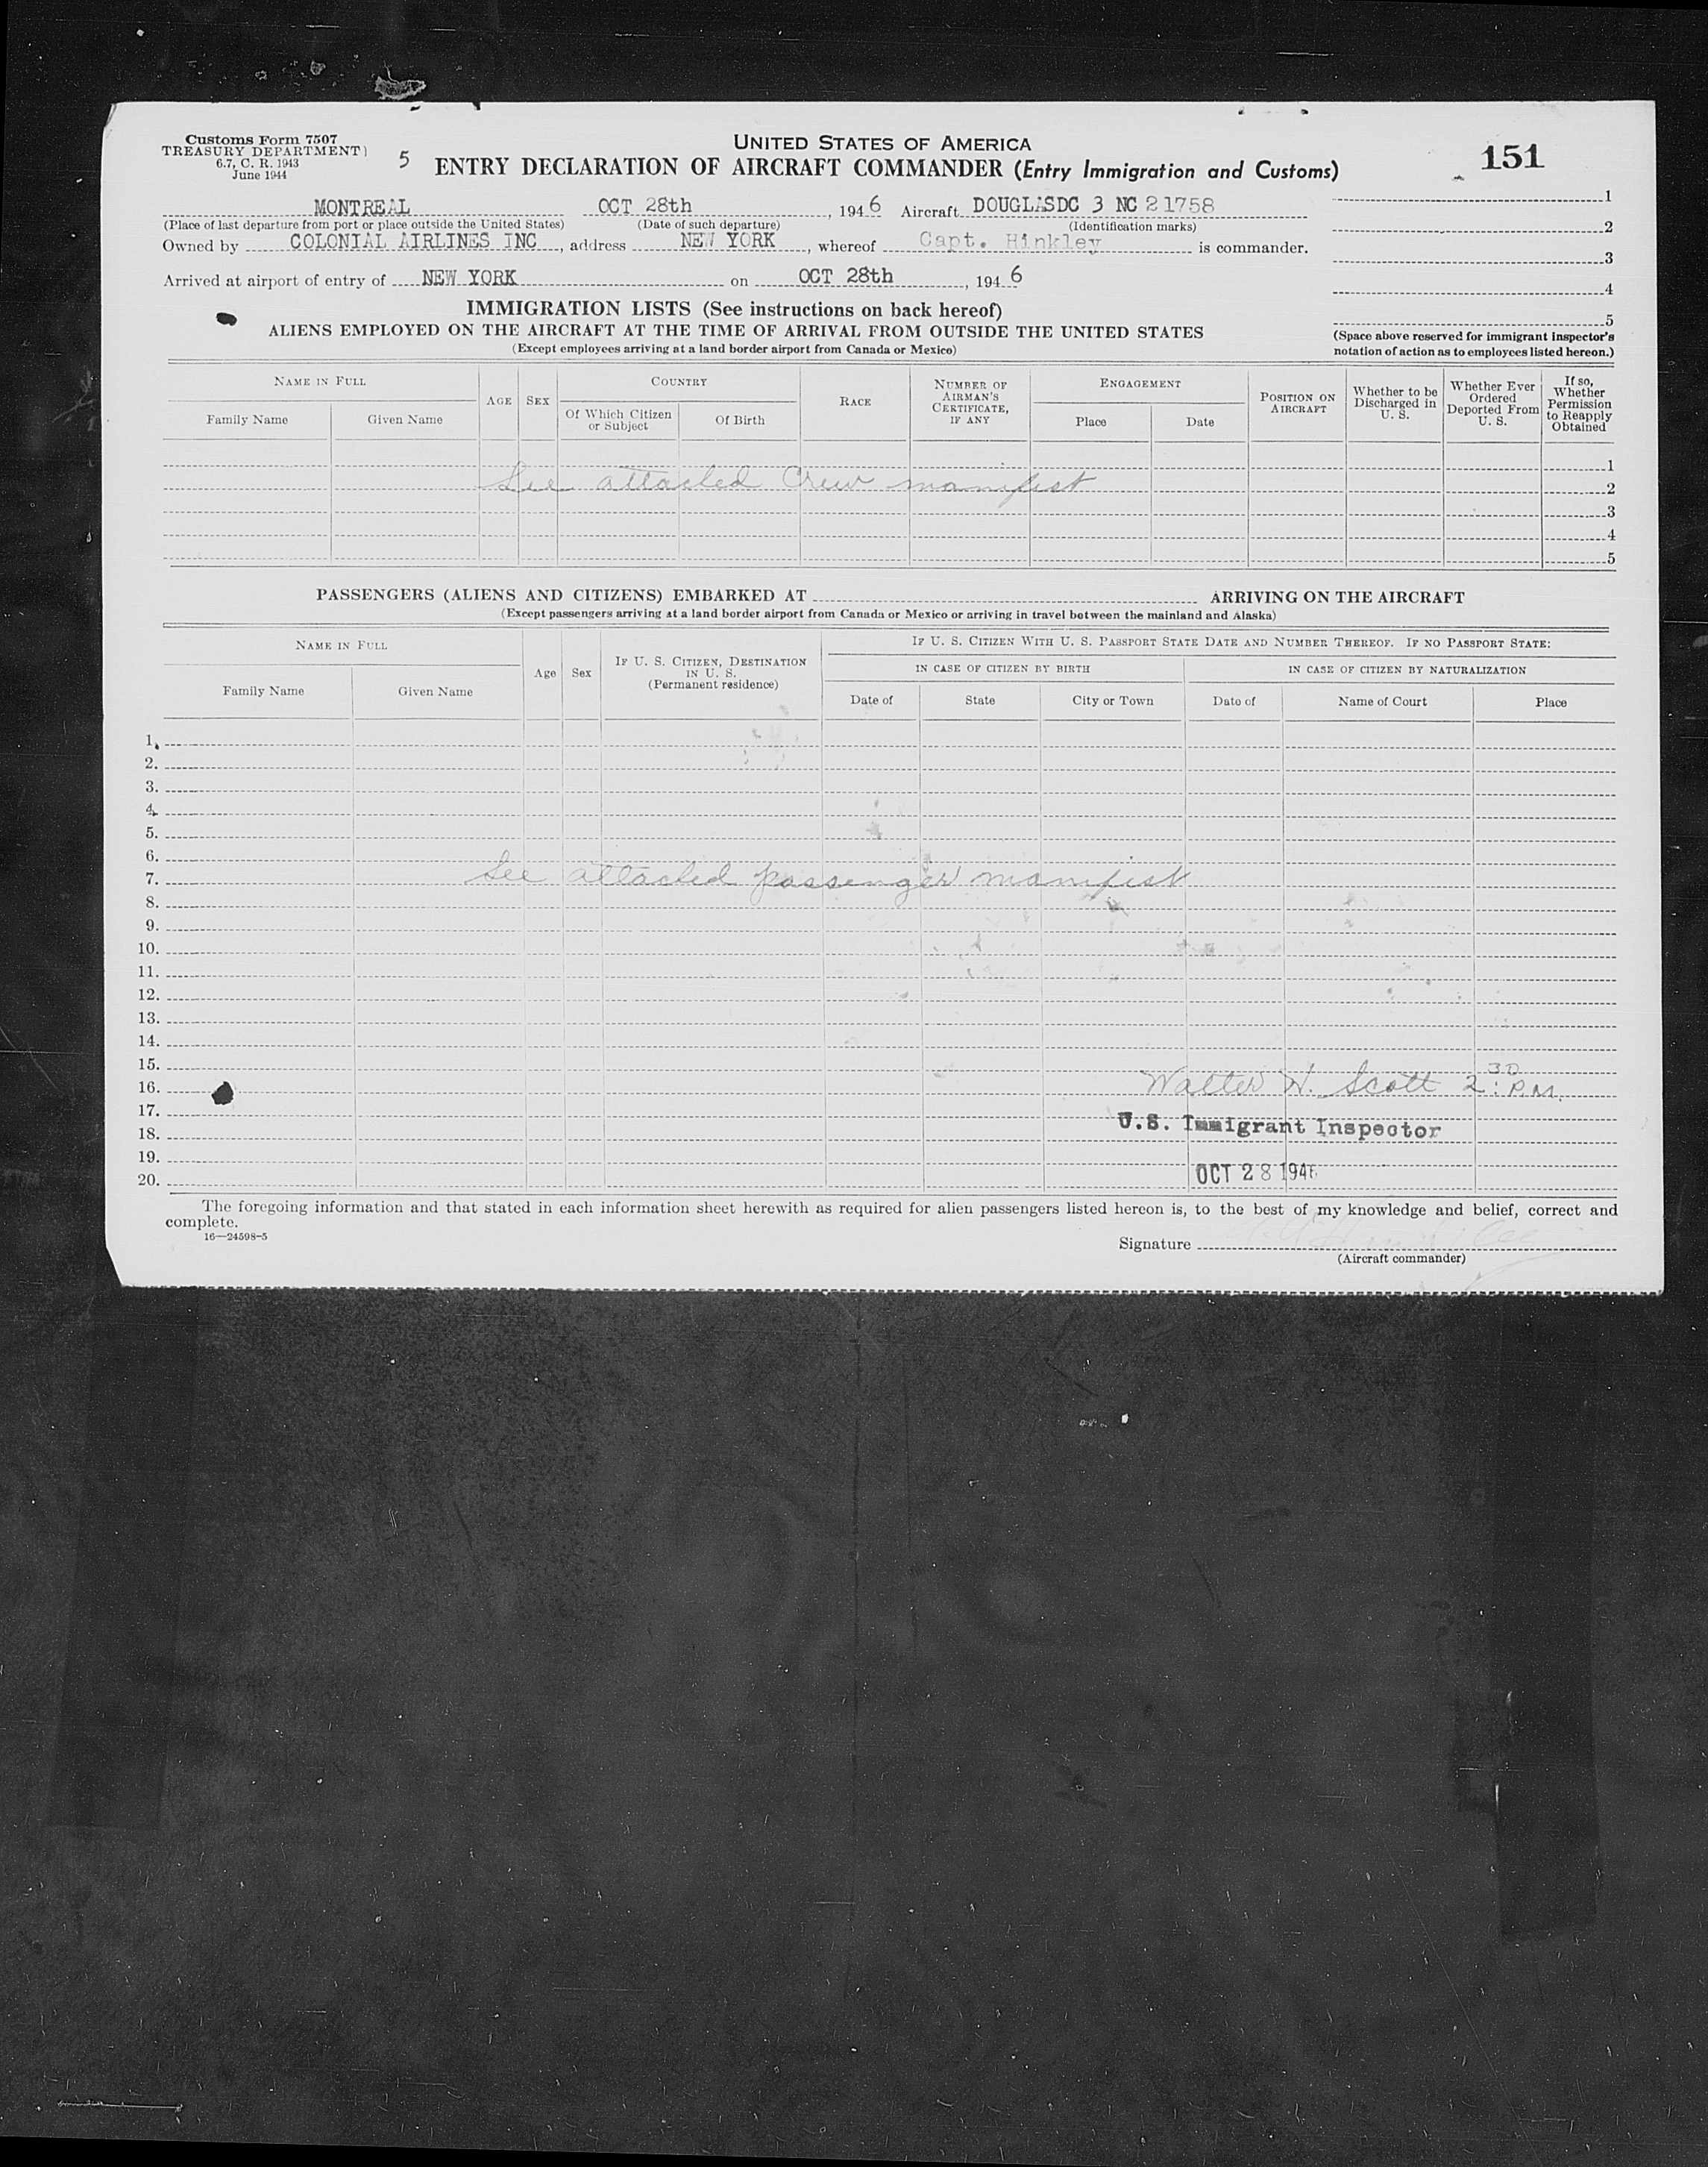 Customs Form 7507
TREASURY DEPARTMENT)
6.7, C. R. 1943
June 1944
5
UNITED STATES OF AMERICA
ENTRY DECLARATION OF AIRCRAFT COMMANDER (Entry Immigration and Customs)
151
MONTREAL OCT 28th, 1946 Aircraft DOUGLAS DC 3 NC 21758
(Place of last departure from port or place outside the United States) (Date of such departure) (Identification marks)
Owned by COLONIAL AIRLINES INC, address NEW YORK, whereof Capt. Hinkley is commander.
Arrived at airport of entry of NEW YORK on OCT 28th, 1946
1
2
3
4
5
(Space above reserved for immigrant inspector's
notation of action as to employees listed hereon.)
IMMIGRATION LISTS (See instructions on back hereof)
ALIENS EMPLOYED ON THE AIRCRAFT AT THE TIME OF ARRIVAL FROM OUTSIDE THE UNITED STATES
(Except employees arriving at a land border airport from Canada or Mexico)
NAME IN FULL
Family Name
Given Name
AGE
SEX
COUNTRY
Of Which Citizen
or Subject
Of Birth
RACE
NUMBER OF
AIRMAN'S
CERTIFICATE,
IF ANY
ENGAGEMENT
Place
Date
POSITION ON
AIRCRAFT
Whether to be
Discharged in
U. S.
Whether Ever
Ordered
Deported From
U. S.
If so,
Whether
Permission
to Reapply
Obtained
1
See attached Crew manifest
2
3
4
5
PASSENGERS (ALIENS AND CITIZENS) EMBARKED AT ARRIVING ON THE AIRCRAFT
(Except passengers arriving at a land border airport from Canada or Mexico or arriving in travel between the mainland and Alaska)
NAME IN FULL
Family Name
Given Name
Age
Sex
IF U. S. CITIZEN, DESTINATION
IN U. S.
(Permanent residence)
IF U. S. CITIZEN WITH U. S. PASSPORT STATE DATE AND NUMBER THEREOF. IF NO PASSPORT STATE:
IN CASE OF CITIZEN BY BIRTH
IN CASE OF CITIZEN BY NATURALIZATION
Date of
State
City or Town
Date of
Name of Court
Place
1.
2.
3.
4.
5.
6.
7. See attached passenger manifest
8.
9.
10.
11.
12.
13.
14.
15.
16. Walter W. Scott 2:30 P.M.
17.
U.S. Immigrant Inspector
18.
19.
OCT 28 1946
20.
The foregoing information and that stated in each information sheet herewith as required for alien passengers listed hereon is, to the best of my knowledge and belief, correct and
complete.
16—24598-5
Signature
(Aircraft commander)